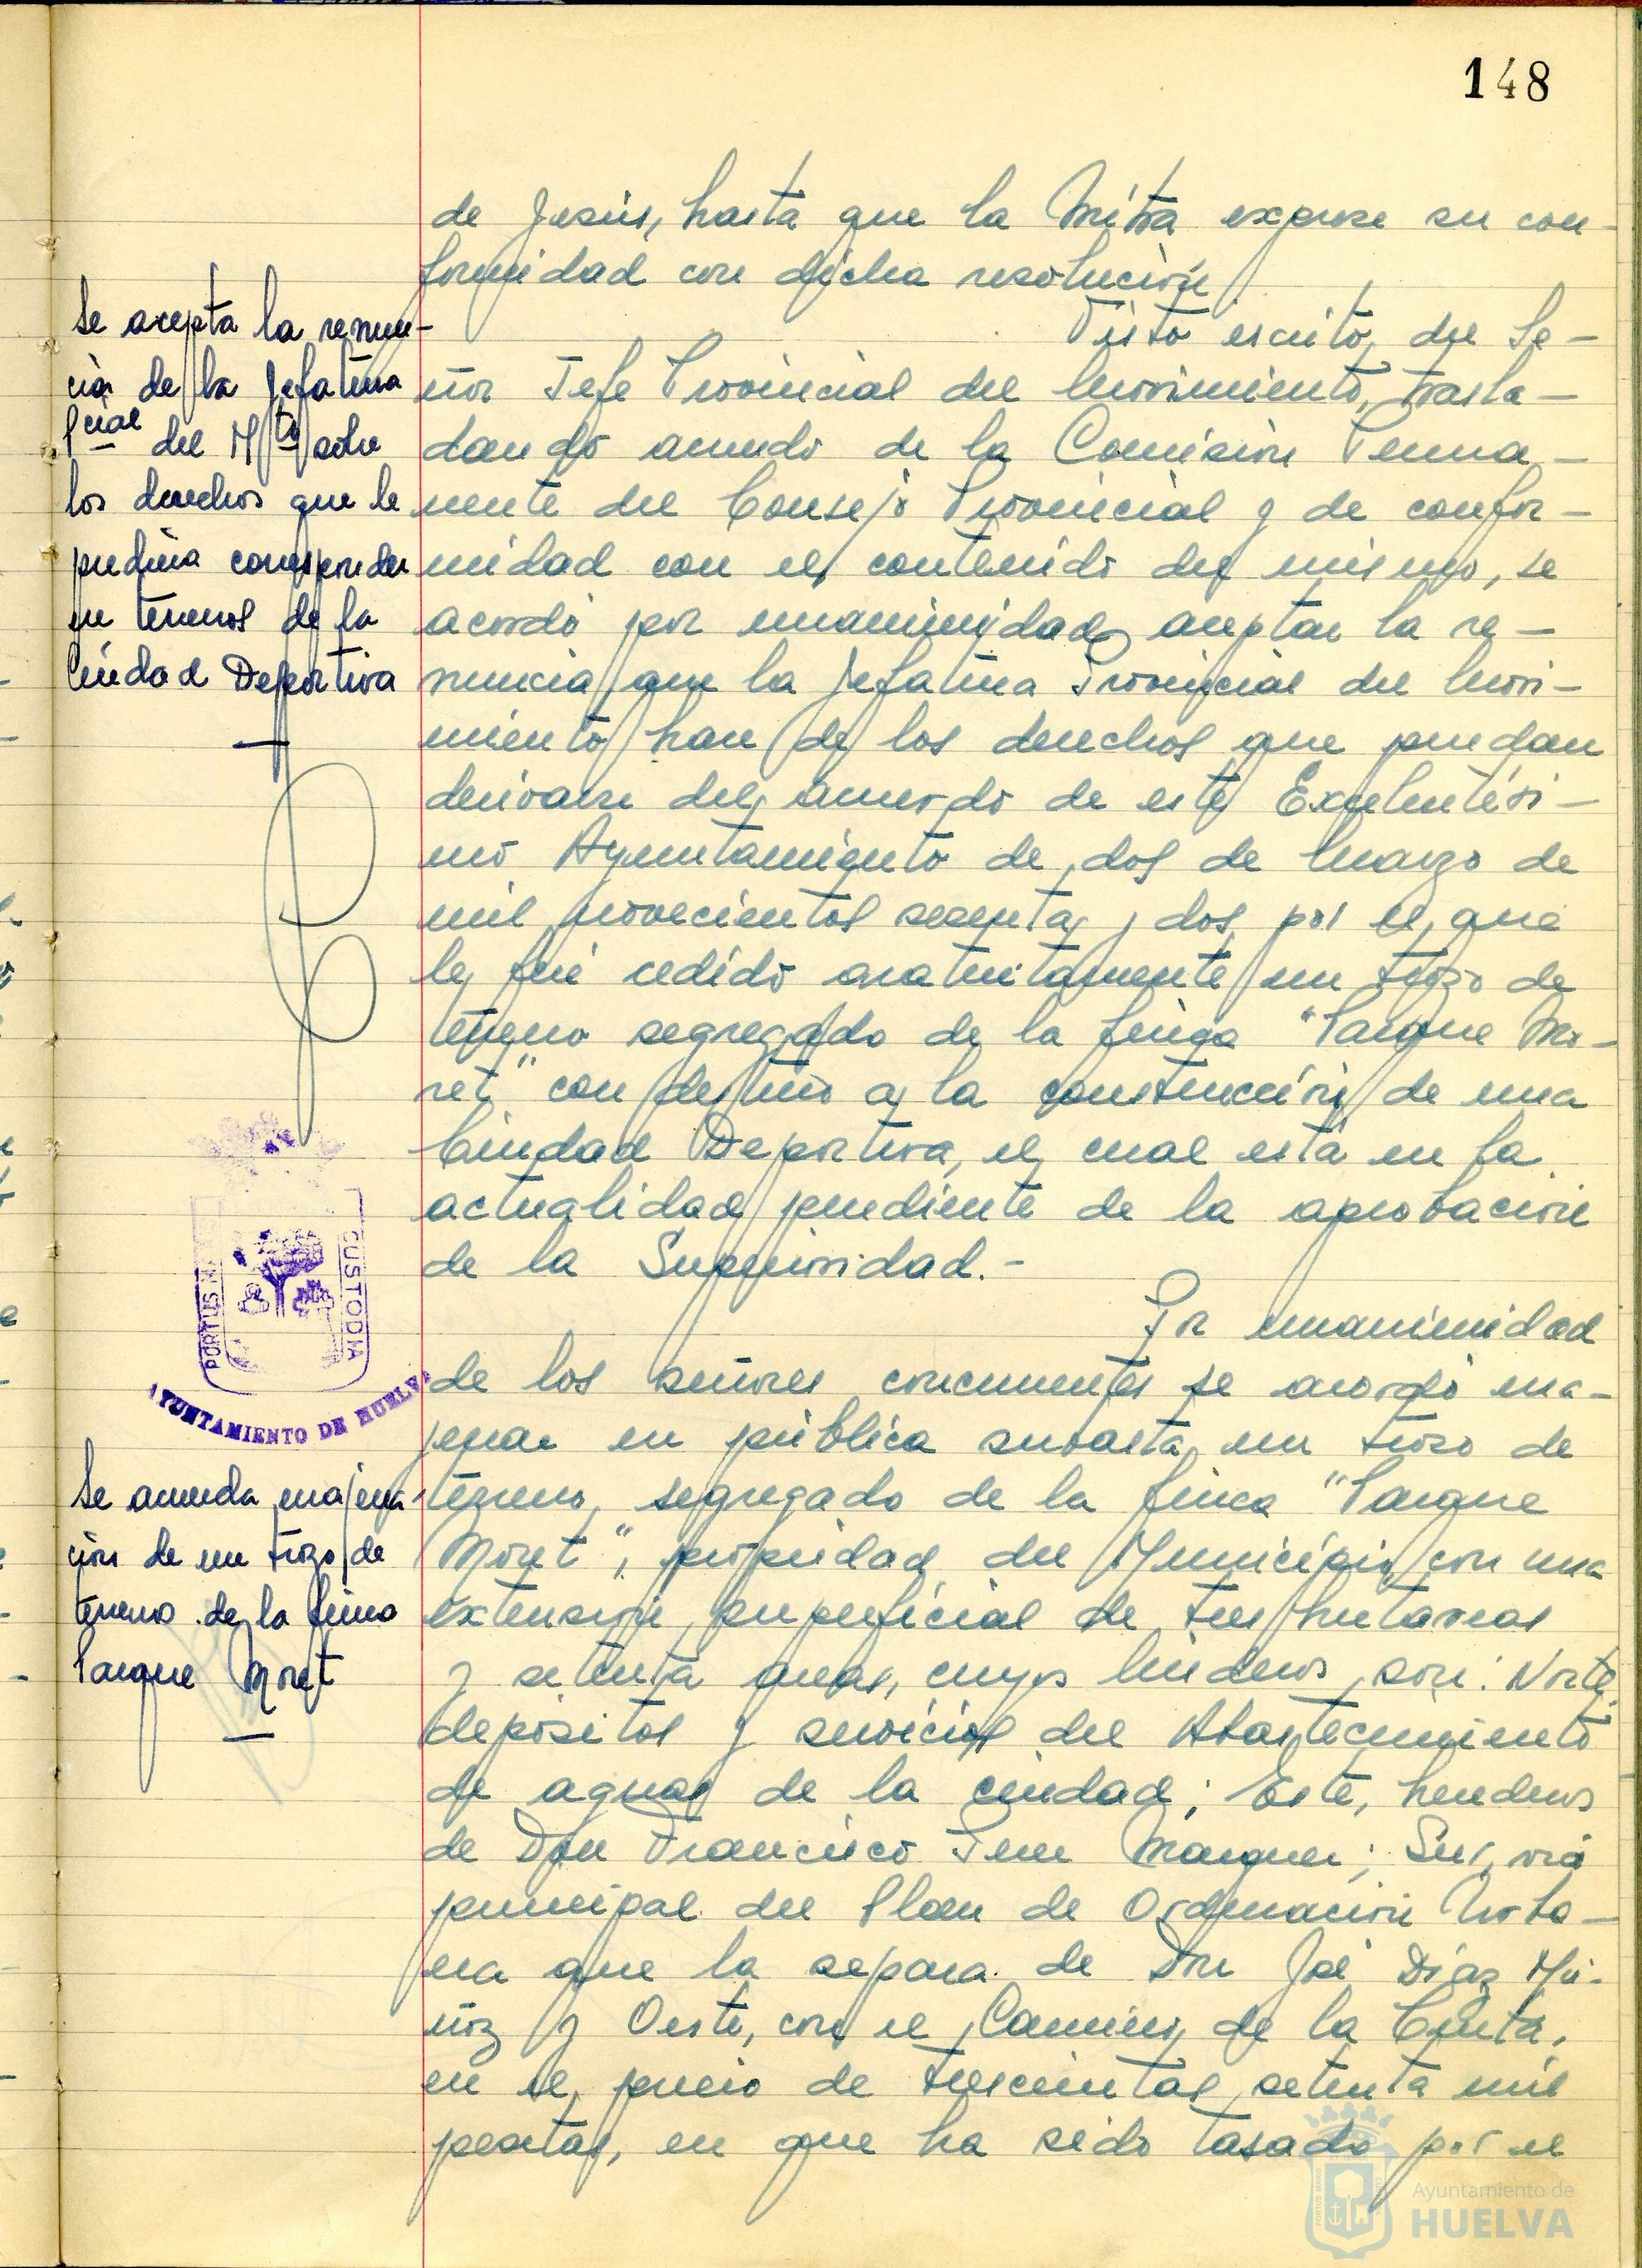 148
de Jesús, hasta que la Mitra exprese su con-
formidad con dicha resolución
Visto escrito del Se-
ñor Jefe Provincial del Movimiento, trasla-
dando acuerdo de la Comisión Perma-
nente del Consejo Provincial y de confor-
midad con el contenido del mismo, se
acordó por unanimidad aceptar la re-
nuncia que la Jefatura Provincial del Movi-
miento hace de los derechos que puedan
derivarse del acuerdo de este Excelentísi-
mo Ayuntamiento de dos de Marzo de
mil novecientos sesenta y dos por el que
le fué cedido gratuitamente un trozo de
terreno segregado de la finca "Parque Mo-
ret" con destino a la construcción de una
Ciudad Deportiva, el cual está en la
actualidad pendiente de la aprobación
de la Superioridad.-
Por unanimidad
de los señores concurrentes se acordó ena-
jenar en pública subasta un trozo de
terreno, segregado de la finca "Parque
Moret", propiedad del Municipio, con una
extensión superficial de tres hectareas
y setenta areas, cuyos linderos son: Norte,
depósitos y servicios del Abastecimiento
de aguas de la ciudad; Este, herederos
de Don Francisco Márquez; Sur, via
principal del Plan de Ordenación Urba-
na que la separa de Don José Díaz Mu-
ñoz y Oeste, con el Camino de la Cinta,
en el precio de trescientas setenta mil
pesetas, en que ha sido tasado por el
Se acepta la renun-
cia de la Jefatura
Pcial del Mto sobre
los derechos que le
pudiera corresponder
en terrenos de la
Ciudad Deportiva
PORTUS MARIS CUSTODIA
AYUNTAMIENTO DE HUELVA
Se acuerda enajena-
ción de un trozo de
terreno de la finca
Parque Moret
Ayuntamiento de
HUELVA